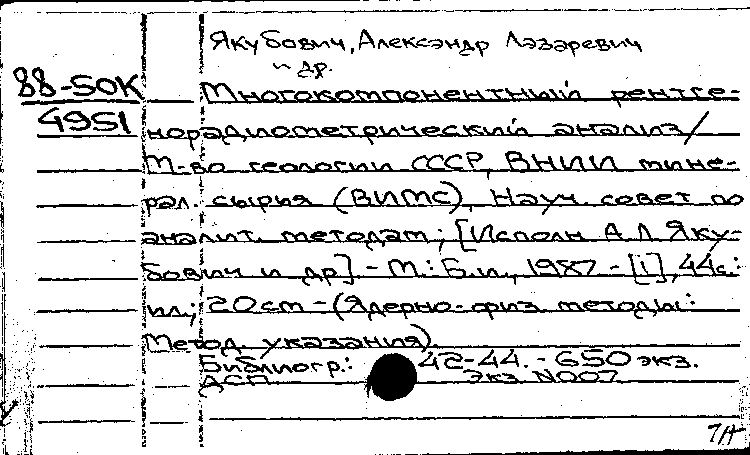 Якубович, Александр Лазаревич
и др.
88-50К
4951
Многокомпонентный рентге-
норадиометрический анализ/
М-во геологии СССР, ВНИИ мине-
рал. сырья (ВИМС), Науч. совет по
аналит. методам; [Исполн А.Л. Яку-
бович и др]. - М.: Б.и., 1987 - [1], 44с.:
ил.; 20см - (Ядерно-физ. методы:
Метод. указания).
Библиогр.: 42-44. - 650 экз.
ДСП Экз N007